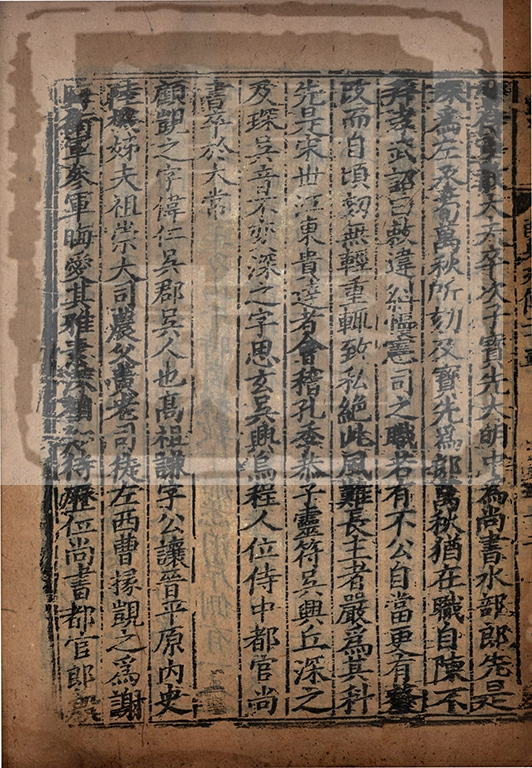 太夫卒次子寳先大明中爲尚書水部郎先是
琛爲左丞荀萬秋所劾及寳先爲郎萬秋猶在職自陳不
拜孝武詔曰敕違糾慢憲司之職若有不公自當更有釐
改而自頃劾無輕重輒致私絶此風難長主者嚴爲其科
先是宋世江東貴達者會稽孔季恭子靈符吳興丘深之
及琛吳音不變深之字思玄吳興烏程人位侍中都官尚
書卒於太常
顧覬之字偉仁吳郡吳人也高祖謙字公讓晉平原内史
陸機姊夫祖崇大司農父黃老司徒左西曹掾覬之爲謝
晦衛軍參軍晦愛其雅素深相知待歷位尚書都官郎殷